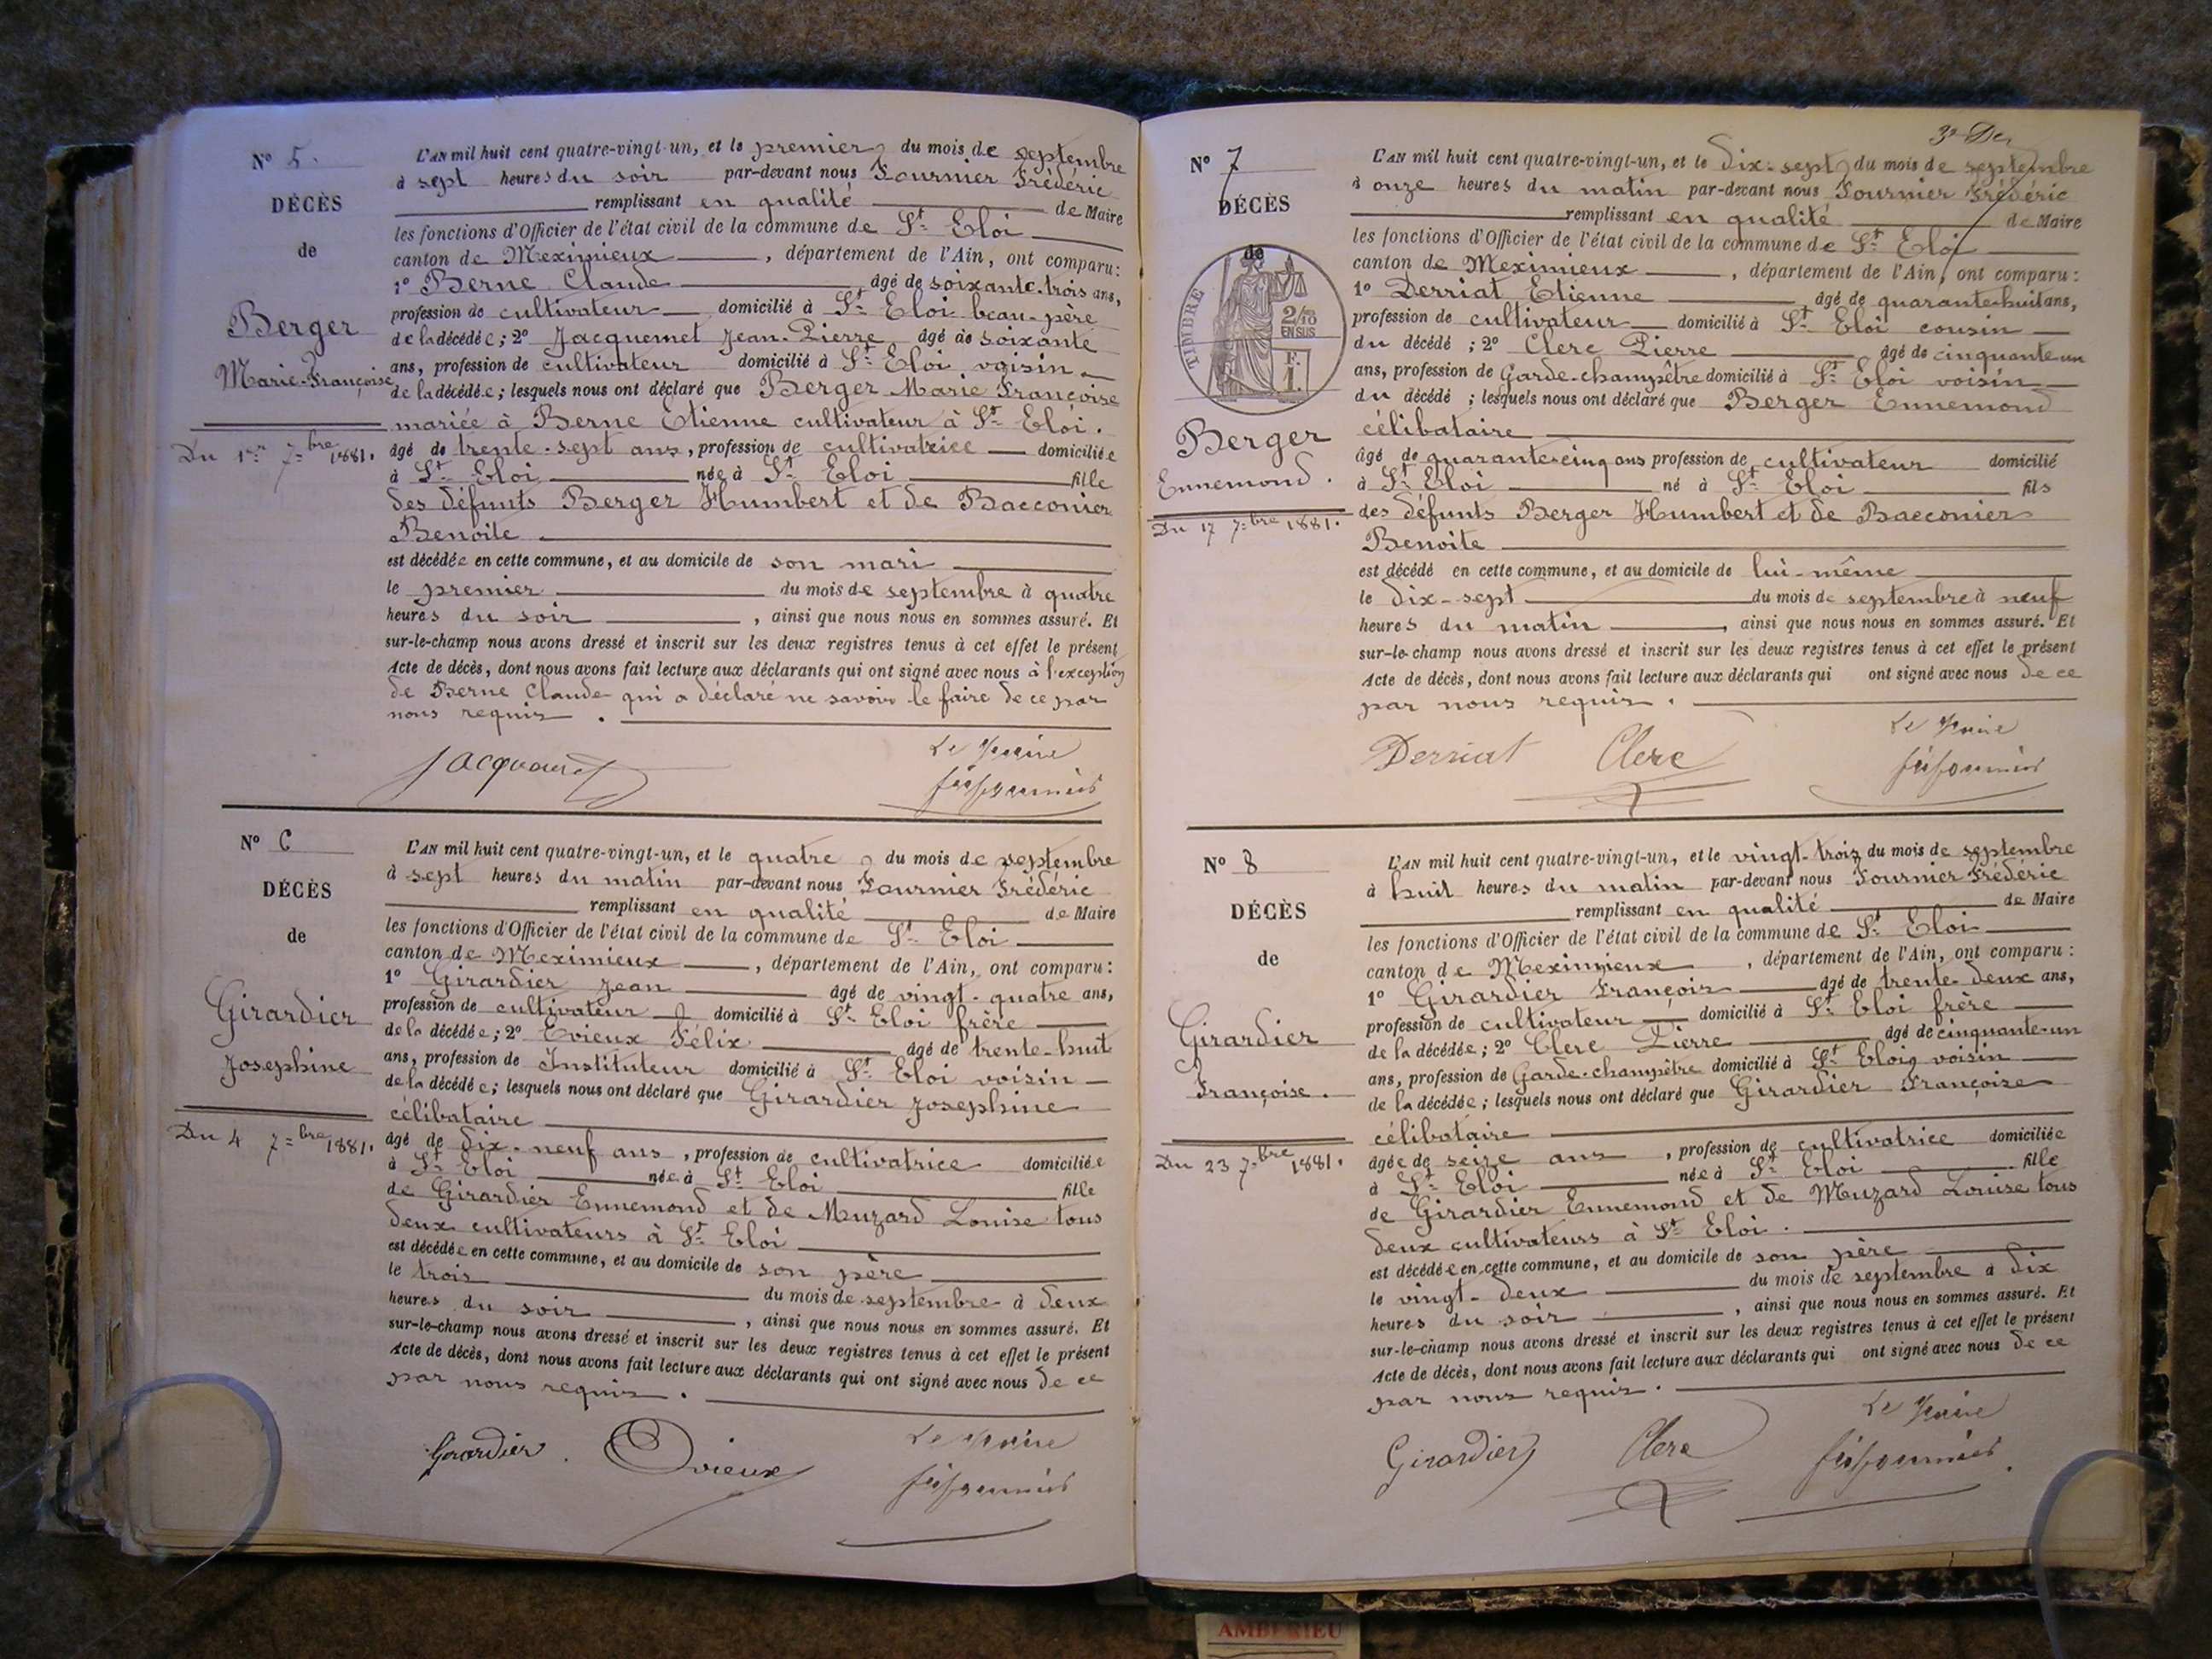 N° 5.
DÉCÈS
de
Berger
Marie-Françoise
Du 1er 7bre 1881.
L'AN mil huit cent quatre-vingt-un, et le premier du mois de septembre
à sept heures du soir par-devant nous Fournier Frédéric
remplissant en qualité de Maire
les fonctions d'Officier de l'état civil de la commune de St Eloi
canton de Meximieux, département de l'Ain, ont comparu:
1° Berne Claude âgé de soixante-trois ans,
profession de cultivateur domicilié à St Eloi beau-père
de la décédée; 2° Jacquemet Jean-Pierre âgé de soixante
ans, profession de cultivateur domicilié à St Eloi voisin
de la décédée; lesquels nous ont déclaré que Berger Marie Françoise
mariée à Berne Etienne cultivateur à St Eloi.
âgé de trente-sept ans, profession de cultivatrice domiciliée
à St Eloi née à St Eloi fille
des défunts Berger Humbert et de Bacconier
Benoite
est décédée en cette commune, et au domicile de son mari
le premier du mois de septembre à quatre
heures du soir, ainsi que nous nous en sommes assuré. Et
sur-le-champ nous avons dressé et inscrit sur les deux registres tenus à cet effet le présent
Acte de décès, dont nous avons fait lecture aux déclarants qui ont signé avec nous à l'exception
de Berne Claude qui a déclaré ne savoir le faire de ce par
nous requis.
Le Maire
Jacquemet
N° 6
DÉCÈS
de
Girardier
Josephine
Du 4 7bre 1881.
L'AN mil huit cent quatre-vingt-un, et le quatre du mois de septembre
à sept heures du matin par-devant nous Fournier Frédéric
remplissant en qualité de Maire
les fonctions d'Officier de l'état civil de la commune de St Eloi
canton de Meximieux, département de l'Ain, ont comparu:
1° Girardier Jean âgé de vingt-quatre ans,
profession de cultivateur domicilié à St Eloi frère
de la décédée; 2° Ovieux Félix âgé de trente-huit
ans, profession de Instituteur domicilié à St Eloi voisin
de la décédée; lesquels nous ont déclaré que Girardier Josephine
célibataire
âgé de dix-neuf ans, profession de cultivatrice domiciliée
à St Eloi née à St Eloi fille
de Girardier Ennemond et de Muzard Louise tous
deux cultivateurs à St Eloi
est décédée en cette commune, et au domicile de son père
le trois du mois de septembre à deux
heures du soir, ainsi que nous nous en sommes assuré. Et
sur-le-champ nous avons dressé et inscrit sur les deux registres tenus à cet effet le présent
Acte de décès, dont nous avons fait lecture aux déclarants qui ont signé avec nous de ce
par nous requis.
Le Maire
Girardier Ovieux
3e De
N° 7
DÉCÈS
de
TIMBRE
2/10
EN SUS
F.
1.
Berger
Ennemond.
Du 17 7bre 1881.
L'AN mil huit cent quatre-vingt-un, et le dix-sept du mois de septembre
à onze heures du matin par-devant nous Fournier Frédéric
remplissant en qualité de Maire
les fonctions d'Officier de l'état civil de la commune de St Eloi
canton de Meximieux, département de l'Ain, ont comparu:
1° Derriat Etienne âgé de quarante-huit ans,
profession de cultivateur domicilié à St Eloi cousin
du décédé; 2° Clerc Pierre âgé de cinquante-un
ans, profession de Garde-champêtre domicilié à St Eloi voisin
du décédé; lesquels nous ont déclaré que Berger Ennemond
célibataire
âgé de quarante-cinq ans profession de cultivateur domicilié
à St Eloi né à St Eloi fils
des défunts Berger Humbert et de Bacconier
Benoite
est décédé en cette commune, et au domicile de lui-même
le dix-sept du mois de septembre à neuf
heures du matin, ainsi que nous nous en sommes assuré. Et
sur-le-champ nous avons dressé et inscrit sur les deux registres tenus à cet effet le présent
Acte de décès, dont nous avons fait lecture aux déclarants qui ont signé avec nous de ce
par nous requis.
Le Maire
Derriat Clerc
N° 8
DÉCÈS
de
Girardier
Françoise.
Du 23 7bre 1881.
L'AN mil huit cent quatre-vingt-un, et le vingt-trois du mois de septembre
à huit heures du matin par-devant nous Fournier Frédéric
remplissant en qualité de Maire
les fonctions d'Officier de l'état civil de la commune de St Eloi
canton de Meximieux, département de l'Ain, ont comparu:
1° Girardier François âgé de trente-deux ans,
profession de cultivateur domicilié à St Eloi frère
de la décédée; 2° Clerc Pierre âgé de cinquante-un
ans, profession de Garde-champêtre domicilié à St Eloi voisin
de la décédée; lesquels nous ont déclaré que Girardier Françoise
célibataire
âgée de seize ans, profession de cultivatrice domiciliée
à St Eloi née à St Eloi fille
de Girardier Ennemond et de Muzard Louise tous
deux cultivateurs à St Eloi.
est décédée en cette commune, et au domicile de son père
le vingt-deux du mois de septembre à dix
heures du soir, ainsi que nous nous en sommes assuré. Et
sur-le-champ nous avons dressé et inscrit sur les deux registres tenus à cet effet le présent
Acte de décès, dont nous avons fait lecture aux déclarants qui ont signé avec nous de ce
par nous requis.
Le Maire
Girardier Clerc
AMBERIEU